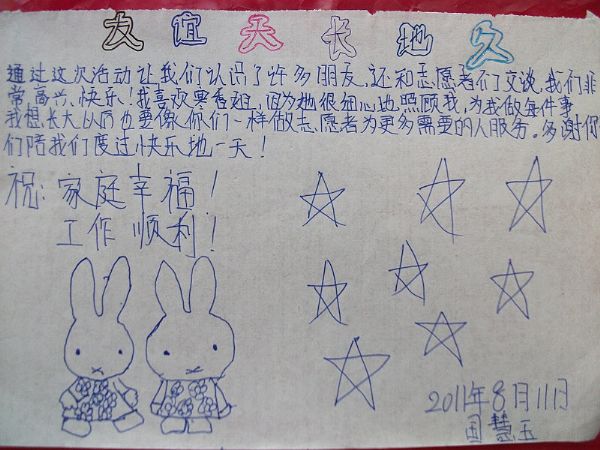 友谊天长地久
通过这次活动让我们认识了许多朋友,还和志愿者们交谈,我们非
常高兴、快乐!我喜欢寒香姐,因为她很细心地照顾我,为我做每件事
我想长大以后也要像你们一样做志愿者为更多需要的人服务。多谢你
们陪我们度过快乐地一天!
祝:家庭幸福!
工作顺利!
2011年8月11日
慧玉